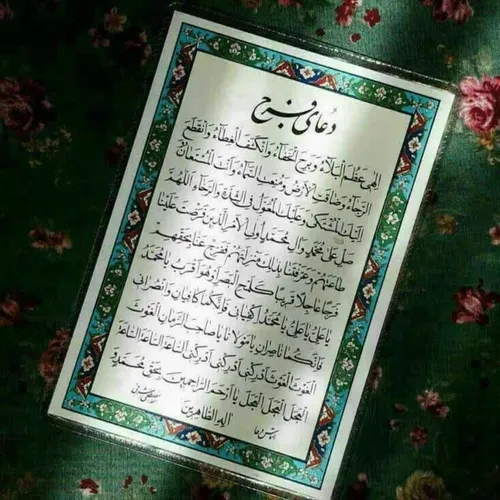 دعای فرج
اِلهی عَظُمَ الْبَلاءُ وَبَرِحَ الْخَفاءُ وَانْکَشَفَ الْغِطاءُ وَانْقَطَعَ
الرَّجاءُ وَضاقَتِ الْاَرْضُ وَمُنِعَتِ السَّماءُ وَاَنْتَ الْمُسْتَعانُ وَ
اِلَیْکَ الْمُشْتَکی وَعَلَیْکَ الْمُعَوَّلُ فِی الشِّدَّةِ وَالرَّخاءِ اَللّهُمَّ
صَلِّ عَلی مُحَمَّدٍ وَآلِ مُحَمَّدٍ اُولِی الْاَمْرِ الَّذینَ فَرَضْتَ عَلَیْنا
طاعَتَهُمْ وَعَرَّفْتَنا بِذلِکَ مَنْزِلَتَهُمْ فَفَرِّجْ عَنّا بِحَقِّهِمْ
فَرَجاً عاجِلاً قَریباً کَلَمْحِ الْبَصَرِ اَوْ هُوَ اَقْرَبُ یا مُحَمَّدُ
یا عَلِیُّ یا عَلِیُّ یا مُحَمَّدُ اِکْفِیانی فَاِنَّکُما کافِیانِ وَانْصُرانی
فَاِنَّکُما ناصِرانِ یا مَوْلانا یا صاحِبَ الزَّمانِ الْغَوْثَ
الْغَوْثَ الْغَوْثَ اَدْرِکْنی اَدْرِکْنی اَدْرِکْنی السّاعَةَ السّاعَةَ السّاعَةَ
الْعَجَلَ الْعَجَلَ الْعَجَلَ یا اَرْحَمَ الرّاحِمینَ بِحَقِّ مُحَمَّدٍ وَ
آلِهِ الطّاهِرینَ